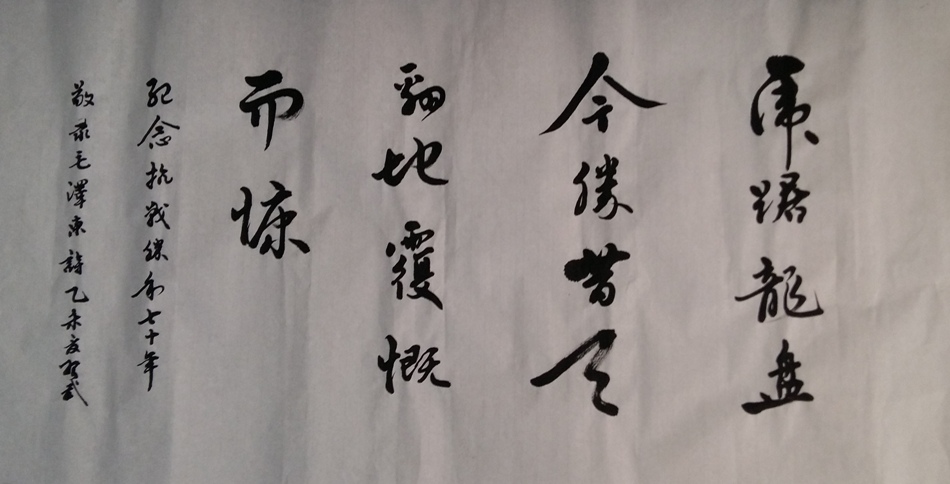 虎踞龍盘
今勝昔天
翻地覆慨
而慷
纪念抗战继利七十年
敬录毛澤東詩乙未夏